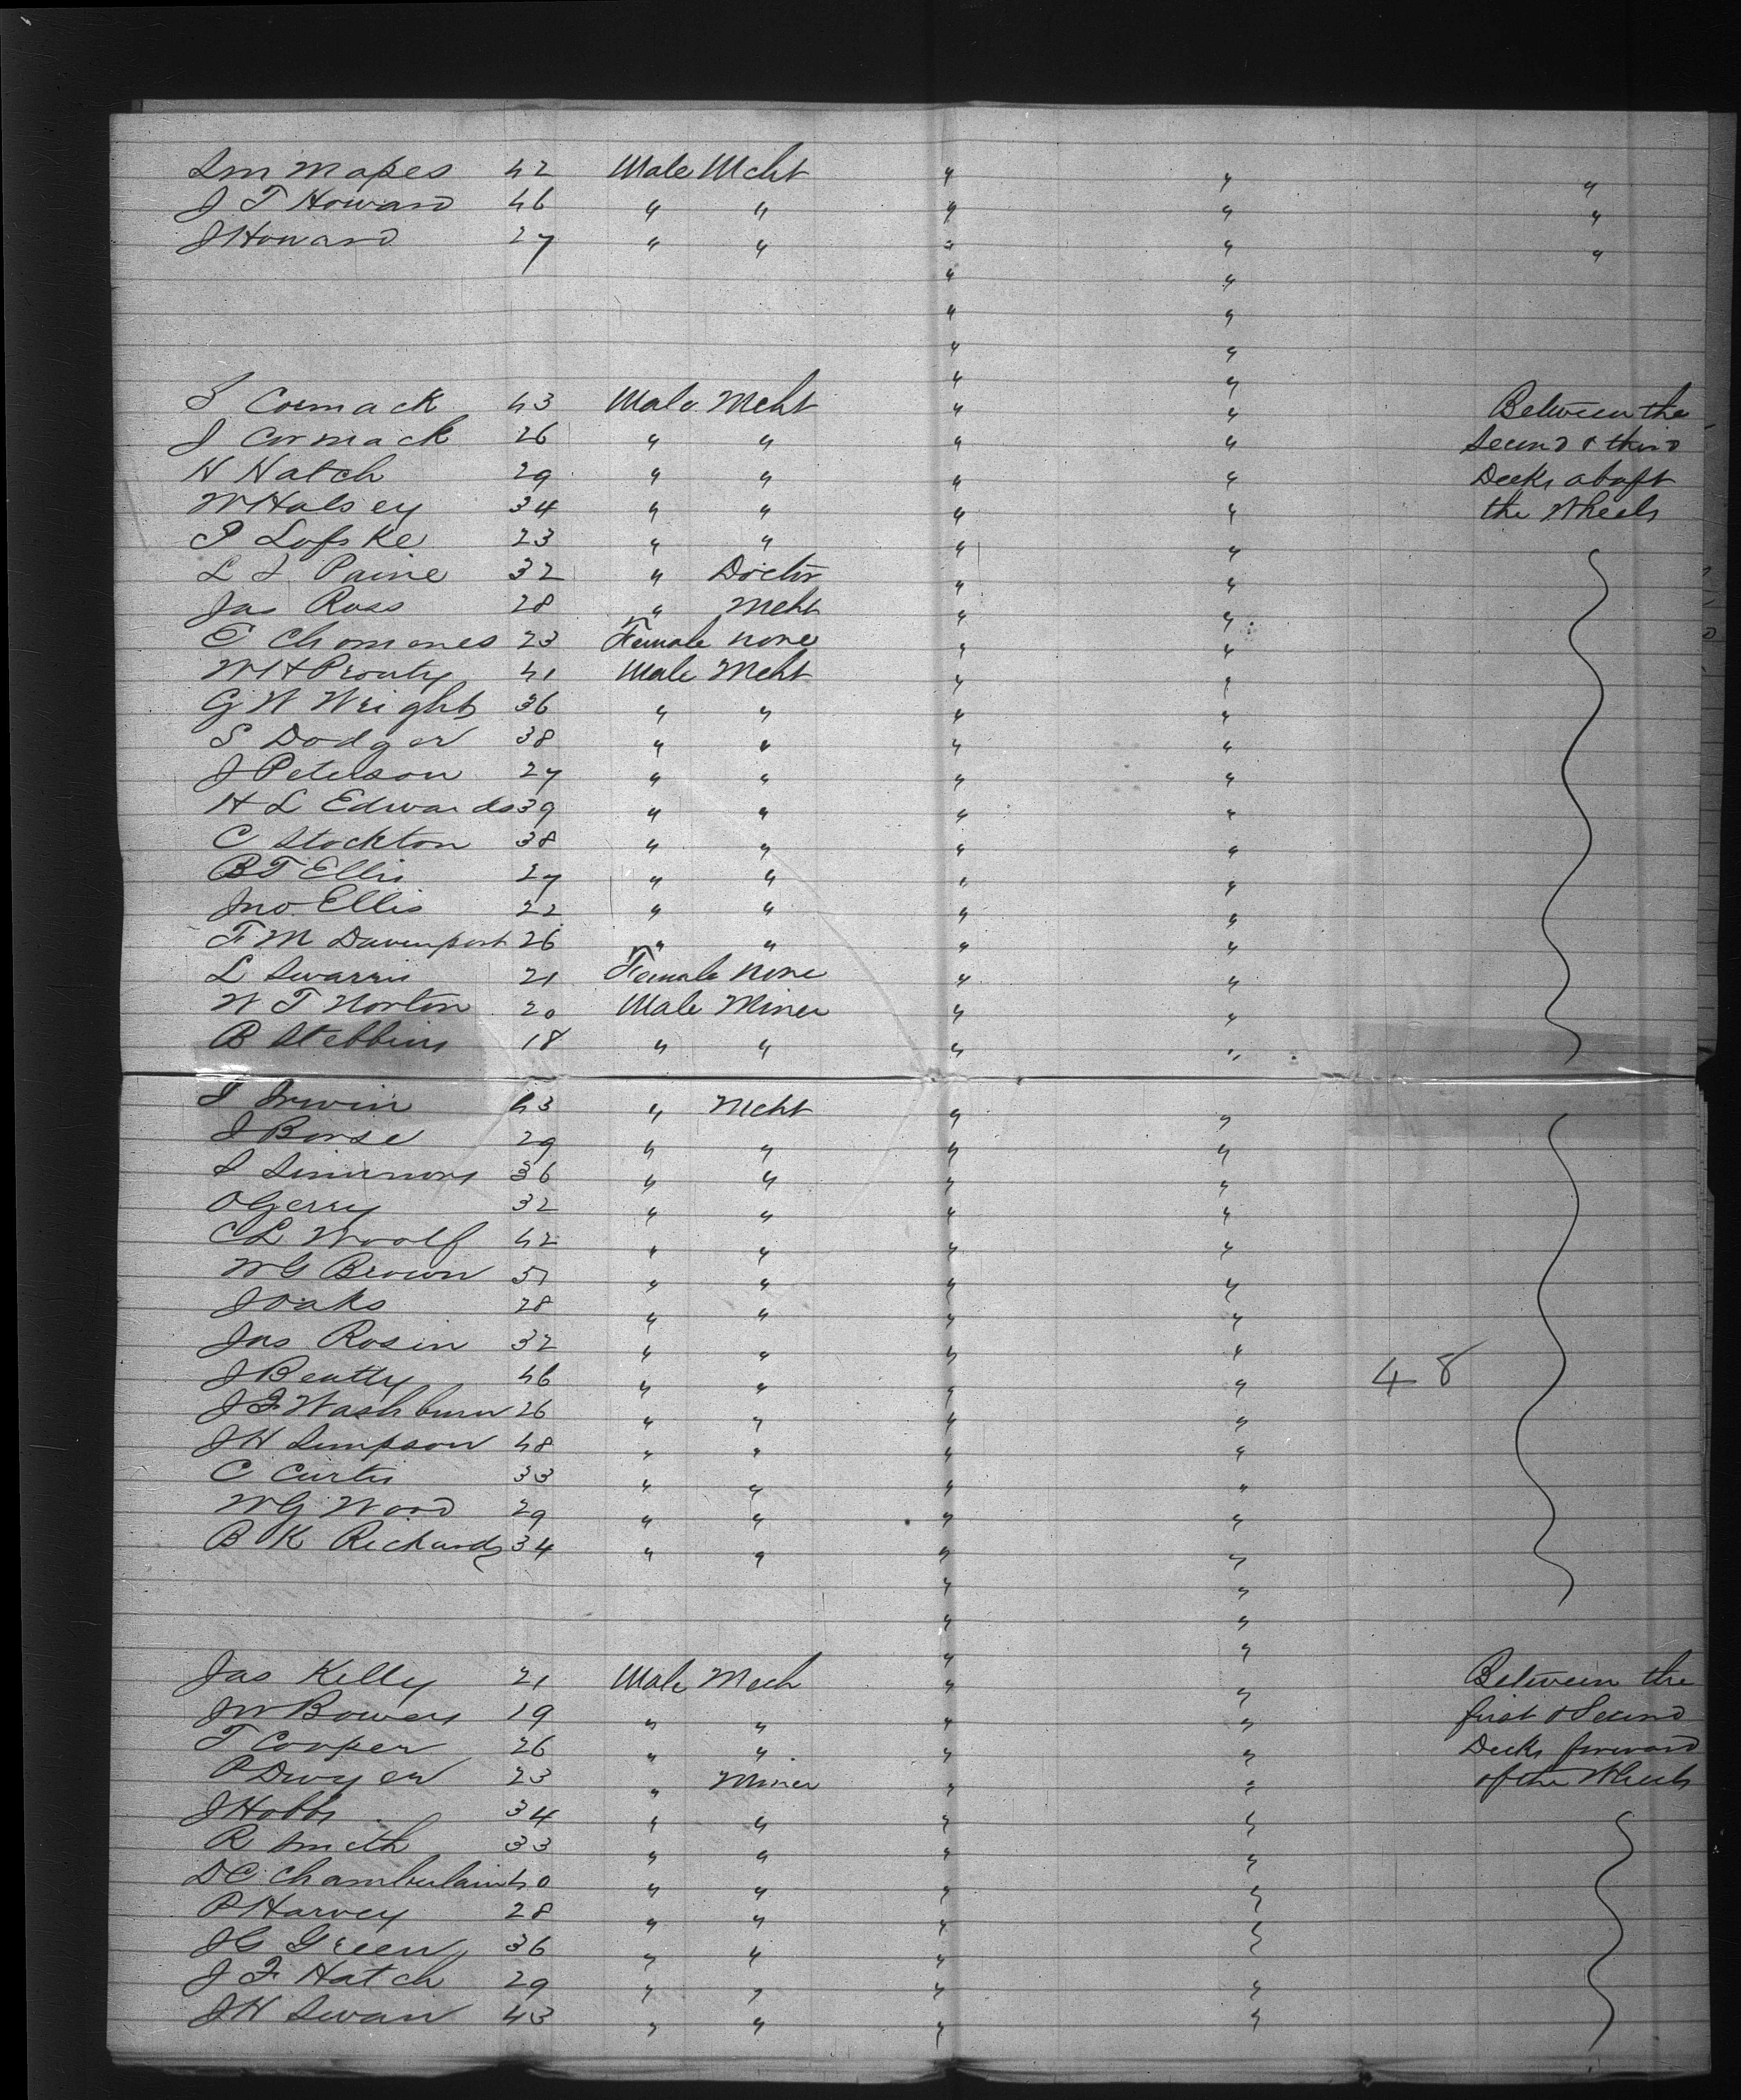 Sm Mapes 42 Male Mcht " " "
J T Howard 46 " " " " "
J Howard 27 " " " " "
" "
" "
" "
" "
S Cormack 43 Male Mcht " " Between the
J Cormack 26 " " " " Second & third
H Hatch 29 " " " " Decks abaft
W Halsey 34 " " " " the Wheels
P Lofske 23 " " " "
L I Paine 32 " Doctor " "
Jas Ross 28 " Mcht " "
E Chomones 23 Female none " "
W H Prouty 41 Male Mcht " "
G W Wright 36 " " " "
S Dodger 38 " " " "
J Peterson 27 " " " "
H L Edwards 39 " " " "
C Stockton 38 " " " "
B T Ellis 27 " " " "
Jno Ellis 22 " " " "
F M Davenport 26 " " " "
L Swarris 21 Female none " "
W T Norton 20 Male Miner " "
B Stebbins 18 " " " "
I Irwin 43 " Mcht " "
J Borse 29 " " " "
S Simmons 36 " " " "
O Gerry 32 " " " "
C L Woolf 42 " " " "
W G Brown 51 " " " "
J Oaks 28 " " " "
Jas Rosin 32 " " " "
J Beatty 46 " " " " 48
J F Washburn 26 " " " "
J H Simpson 48 " " " "
C Curtis 33 " " " "
W G Wood 29 " " " "
B K Richards 34 " " " "
" "
" "
" "
Jas Kelly 21 Male Mech " " Between the
J W Bowers 19 " " " " first & Second
T Cooper 26 " " " " Decks forward
P Dwyer 23 " Miner " " of the Wheels
J Hobbs 34 " " " "
R Smith 33 " " " "
D C Chamberlain 40 " " " "
P Harvey 28 " " " "
J G Green 36 " " " "
J F Hatch 29 " " " "
J H Swan 43 " " " "